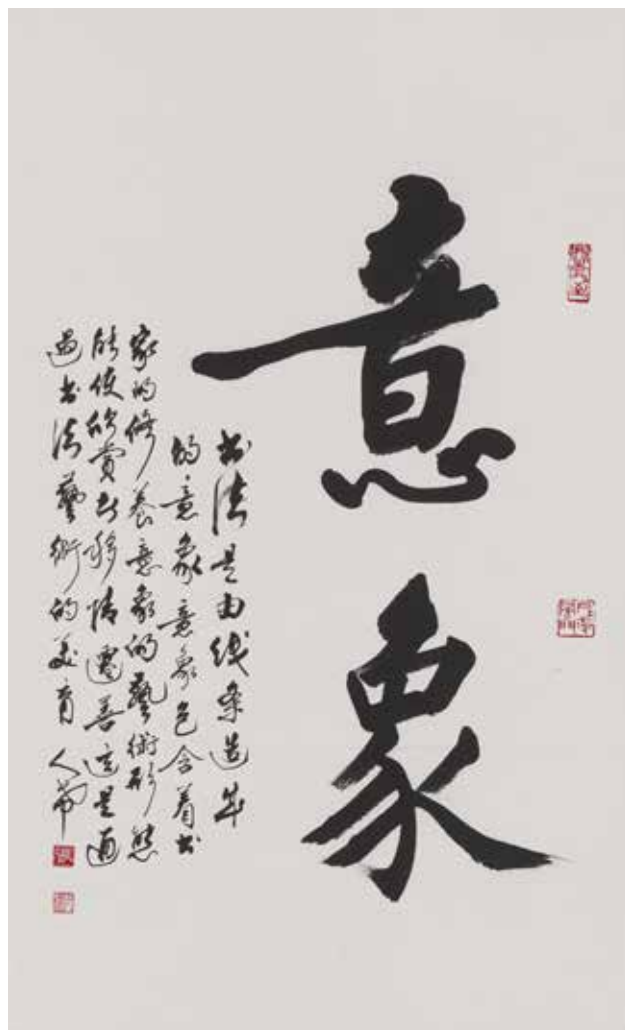 意象
书法是由线条造成
的意象意象包含着书
家的修养意象的藝術形態
能使欣赏者移情遷善這是通
過书法藝術的美育 人帝